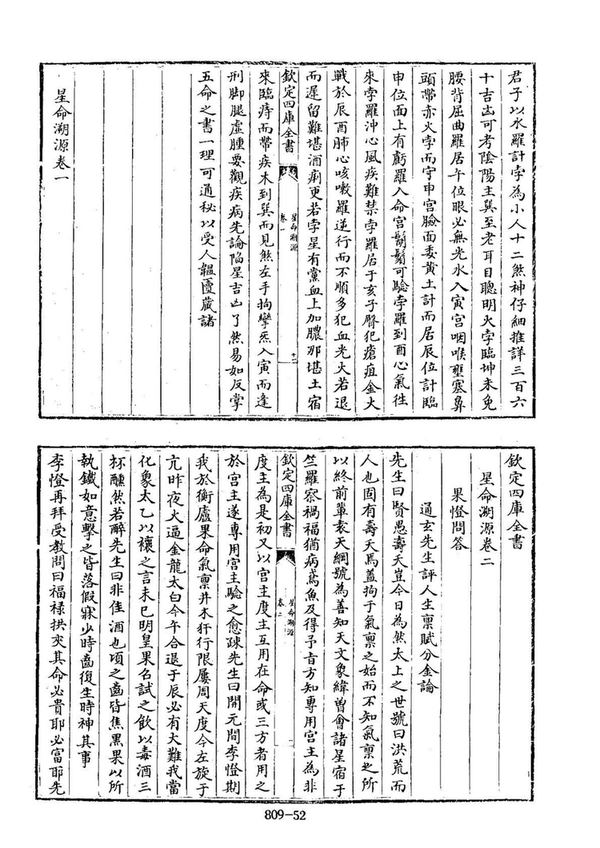 君子以水羅計孛為小人十二煞神仔細推詳三百六
十吉凶可考陰陽主巽至老耳目聰明火孛臨坤未免
腰背屈曲羅居午位眼必無光水入寅宮咽喉壅塞鼻
頭帶赤火孛而守申宮臉面委黃土計而居辰位計臨
申位面上有虧羅入命宮鬍鬚可驗孛羅到酉心氣往
來孛羅沖心風疾難禁孛羅居于亥子腎犯瘡疽金火
戰於辰酉肺心咳嗽羅逆行而不順多犯血光火若退
而遲留難堪酒痢更若孛星有黨血上加膿那堪土宿
欽定四庫全書
星命溯源
卷一
十二
來臨痔而帶疾木到巽而見煞左手拘攣炁入寅而逢
刑脚腿虛腫要觀疾病先論陷星吉凶了然易如反掌
五命之書一理可通秘以受人韞匵藏諸
星命溯源卷一
欽定四庫全書
星命溯源卷二
果燈問答
通玄先生評人生稟賦分金論
先生曰賢愚壽夭豈今日為然太上之世號曰洪荒而
人也固有壽夭焉蓋拘于氣稟之始而不知氣稟之所
以終前輩袁天綱號為善知天文象緯曾會諸星宿于
竺羅察禍福猶病鳶魚及得予旨方知專用宮主為非
欽定四庫全書
星命溯源
卷二
一
度主為是初又以宮主度主互用在命或三方者用之
於宮主遂專用宮主驗之愈疎先生曰開元間李憕期
我於衡廬果命氣稟井木犴行限屢周天度今左旋于
亢昨夜大過金龍太白今午合退于辰必有大難我當
化象太乙以禳之言未巳明皇果名試之飲以毒酒三
杯醺然若醉先生曰非佳酒也頃之齒皆焦黑果以所
執鐵如意擊之皆落假寐少時齒復生時神其事
李憕再拜受教問曰福祿拱夾其命必貴耶必富耶先
809-52